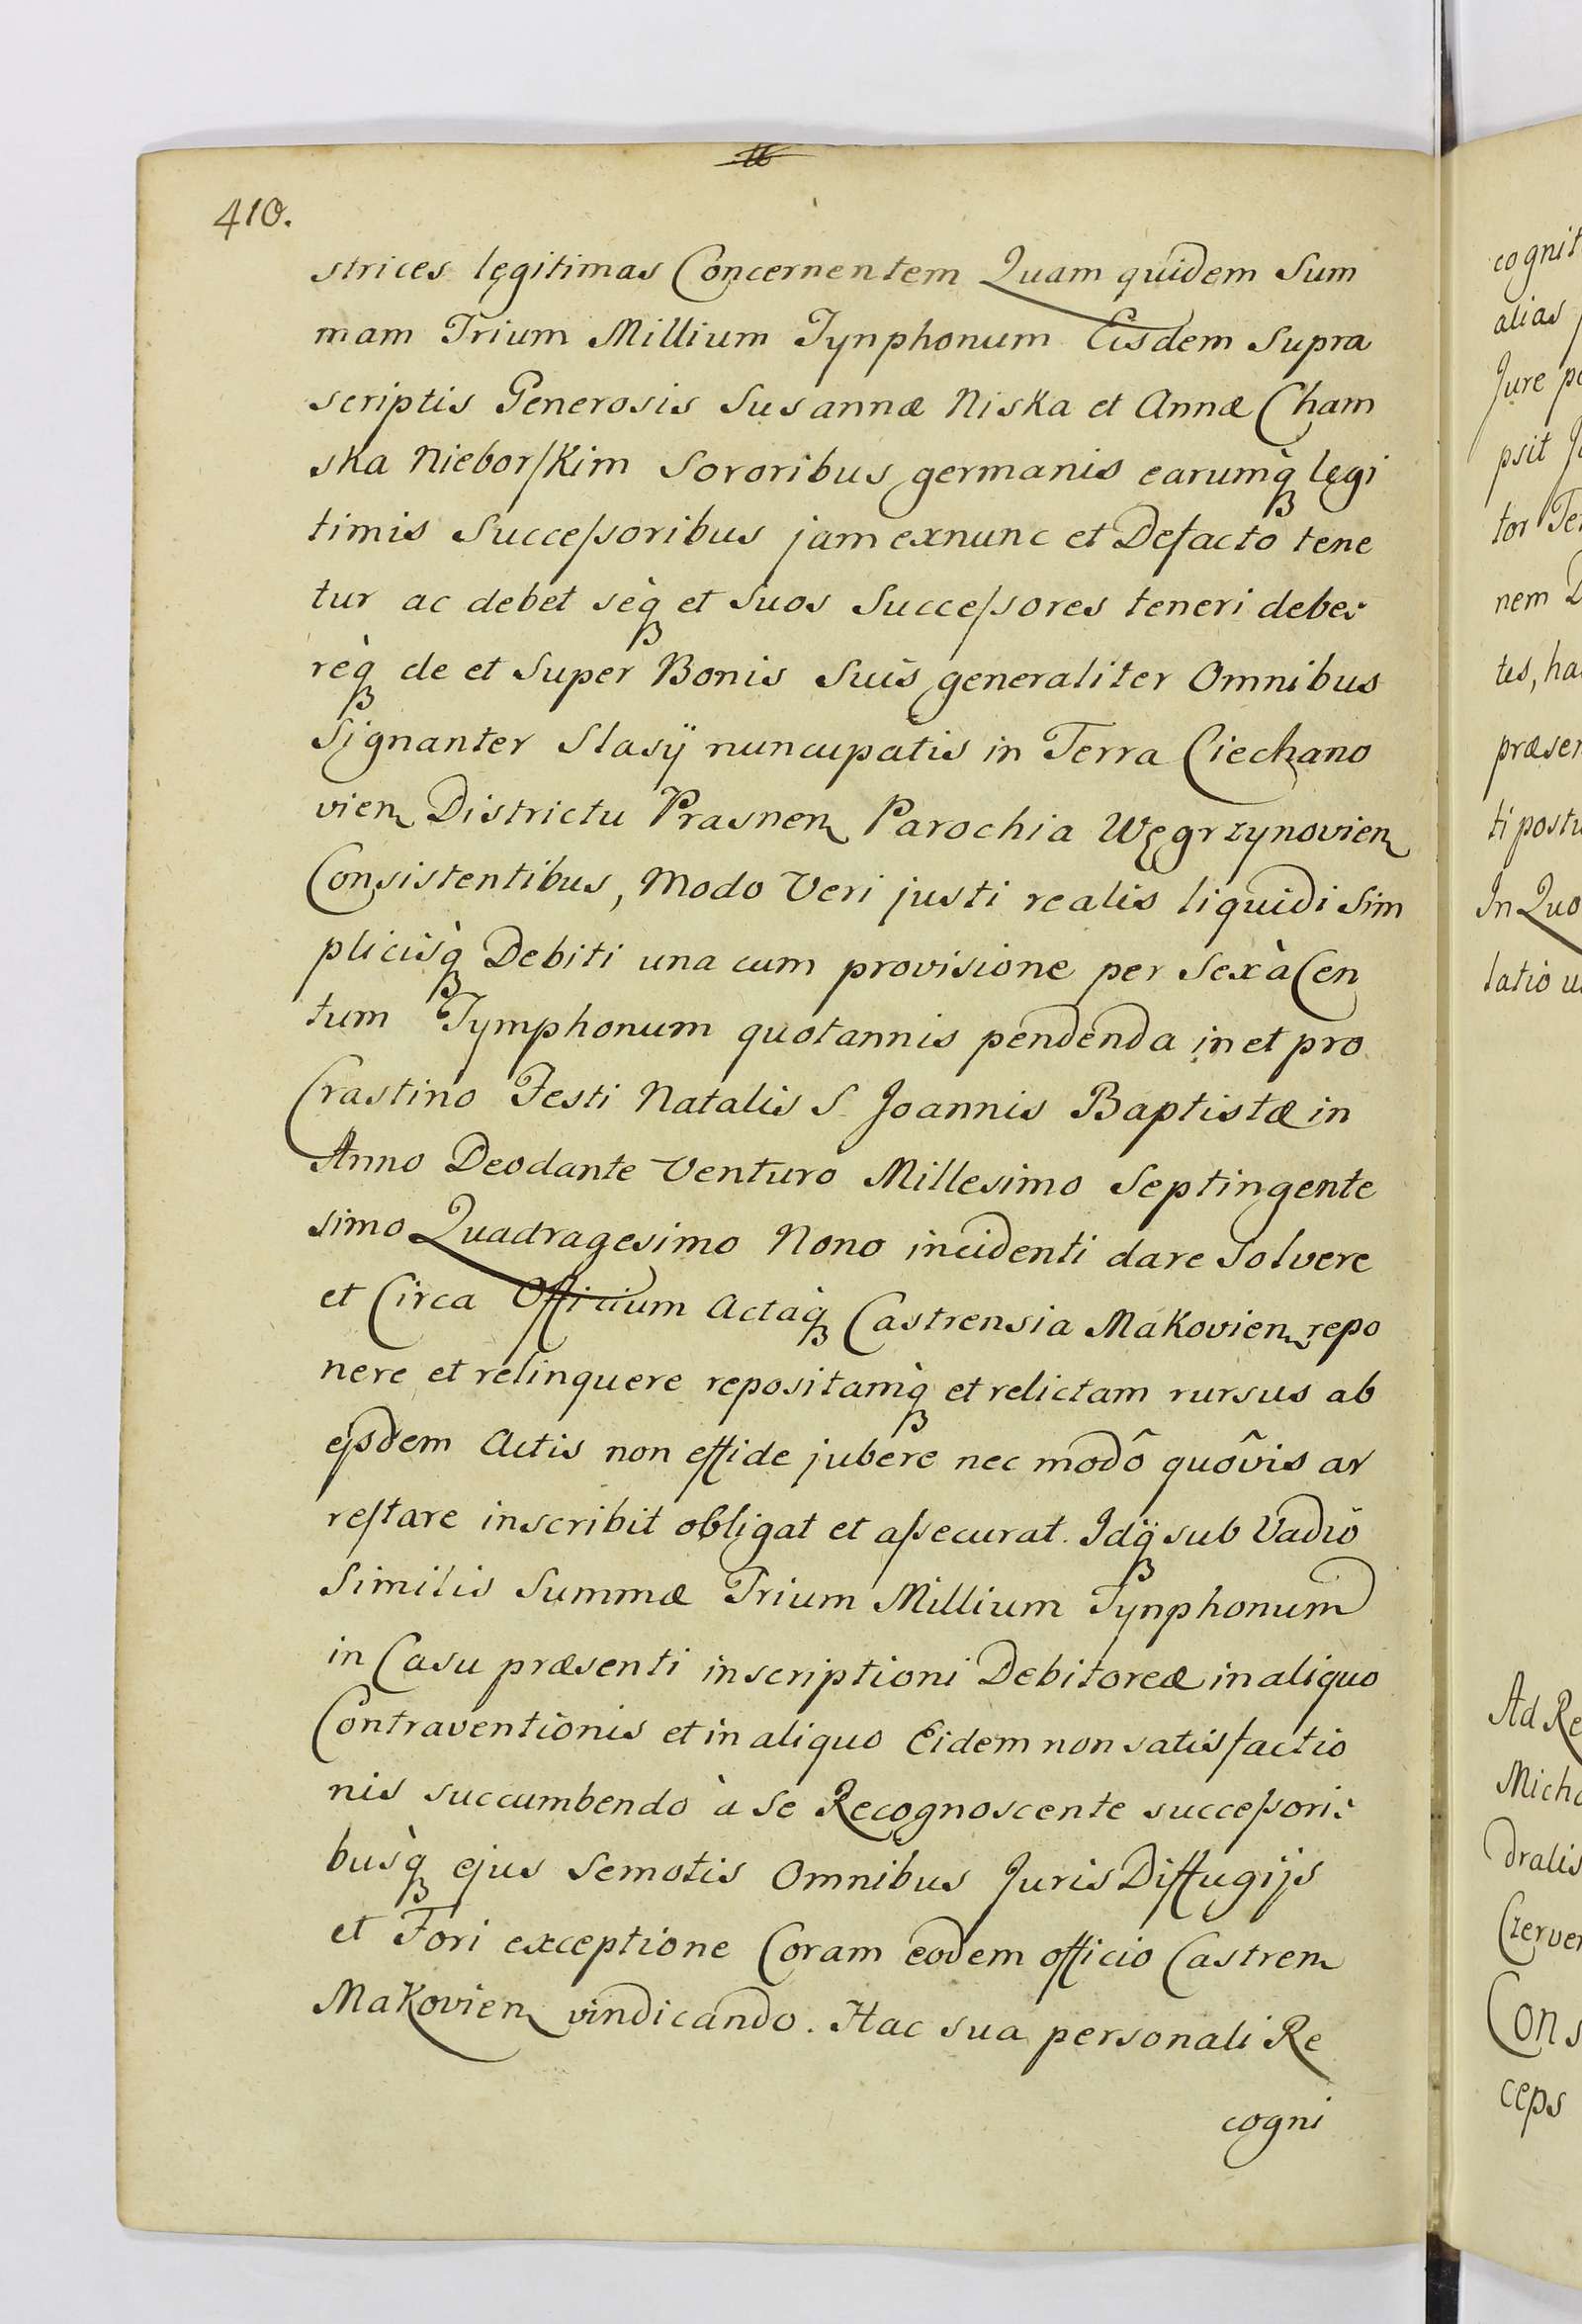 410.
strices legitimas Concernentem Quam quidem Sum
mam Trium Millium Tynphonum Eisdem Supra
scriptis Generosis Susannæ Niska et Annæ Cham
ska Nieborſkim Sororibus germanis earumq̀ꝫ legi
timis Succeſsoribus jam exnunc et Defacto tene
tur ac debet seq̀ꝫ et Suos Succeſsores teneri debe:
req̀ꝫ de et Super Bonis Suis generaliter Omnibus
Signanter Slasÿ nuncupatis in Terra Ciechano
vien Districtu Prasnen Parochia Węgrzynovien
Consistentibus, Modo Veri justi realis liquidi Sim
plicisq̀ꝫ Debiti una cum provisione per Sex à Cen
tum Tymphonum quotannis pendenda in et pro
Crastino Festi Natalis S Joannis Baptistæ in
Anno Deodante Venturo Millesimo Septingente
simo Quadragesimo Nono incidenti dare Solvere
et Circa Officium Actaq̀ꝫ Castrensia Makovien repo
nere et relinquere repositamq̀ꝫ et relictam rursus ab
ejsdem Actis non effide jubere nec modô quôvis ar
reſtare inscribit obligat et aſsecurat. Idq̈ꝫ sub Vadio
Similis Summæ Trium Millium Tynphonum
in Casu præsenti inscriptioni Debitoreæ in aliquo
Contraventionis et in aliquo Eidem non satisfactio
nis succumbendo à Se Recognoscente succeſsori:
busq̀ꝫ ejus Semotis Omnibus Juris Diffugijs
et Fori exceptione Coram eodem officio Castren
Makovien vindicando. Hac sua personali Re
cogni
cognit
alias
Jure po
psit
tor Ter
nem D
tes, ha
præsen
ti postu
In Quo
latio
Ad Re
Micha
dralis
Czerven
Cons
ceps